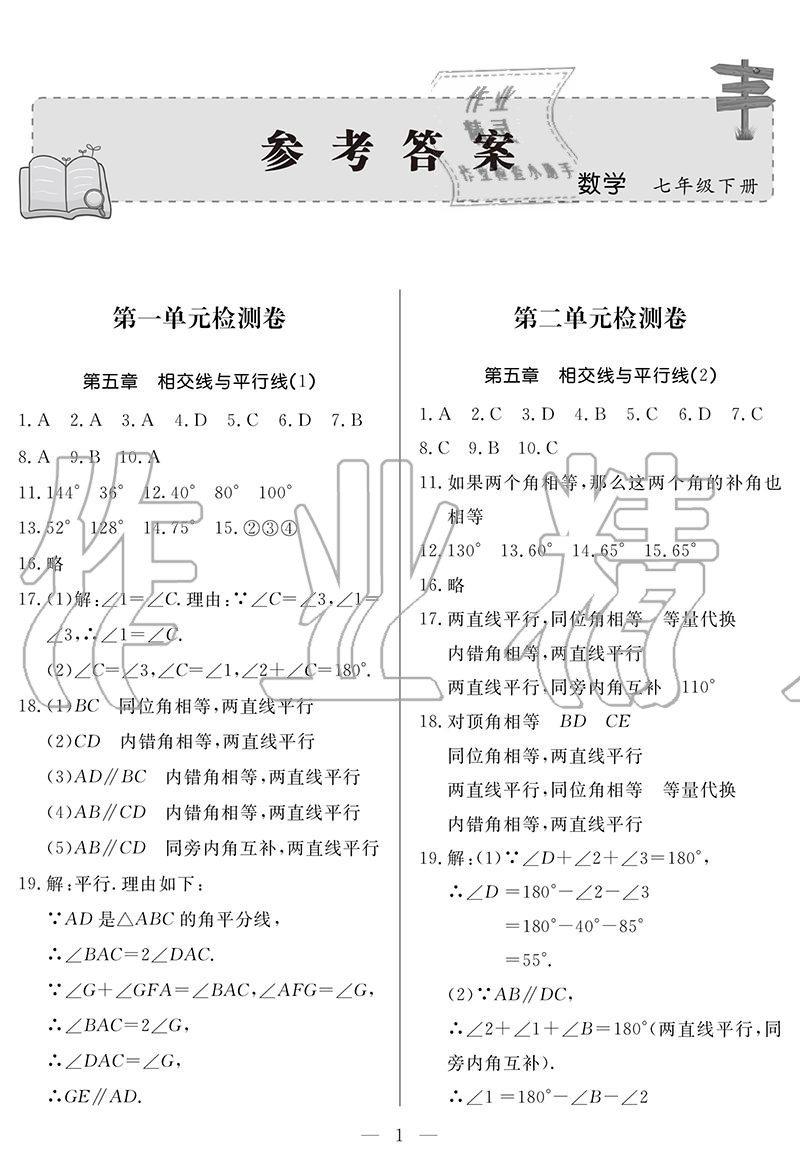 参考答案
数学 七年级下册
作业
精灵
作业检查小助手
第一单元检测卷
第五章 相交线与平行线(1)
1.A 2.A 3.A 4.D 5.C 6.D 7.B
8.A 9.B 10.A
11.144° 36° 12.40° 80° 100°
13.52° 128° 14.75° 15.②③④
16.略
17.(1)解:∠1=∠C.理由:∵∠C=∠3,∠1=
∠3,∴∠1=∠C.
(2)∠C=∠3,∠C=∠1,∠2+∠C=180°.
18.(1)BC 同位角相等,两直线平行
(2)CD 内错角相等,两直线平行
(3)AD∥BC 内错角相等,两直线平行
(4)AB∥CD 内错角相等,两直线平行
(5)AB∥CD 同旁内角互补,两直线平行
19.解:平行.理由如下:
∵AD是△ABC的角平分线,
∴∠BAC=2∠DAC.
∵∠G+∠GFA=∠BAC,∠AFG=∠G,
∴∠BAC=2∠G,
∴∠DAC=∠G,
∴GE∥AD.
第二单元检测卷
第五章 相交线与平行线(2)
1.A 2.C 3.D 4.B 5.C 6.D 7.C
8.C 9.B 10.C
11.如果两个角相等,那么这两个角的补角也
相等
12.130° 13.60° 14.65° 15.65°
16.略
17.两直线平行,同位角相等 等量代换
内错角相等,两直线平行
两直线平行,同旁内角互补 110°
18.对顶角相等 BD CE
同位角相等,两直线平行
两直线平行,同位角相等 等量代换
内错角相等,两直线平行
19.解:(1)∵∠D+∠2+∠3=180°,
∴∠D=180°-∠2-∠3
=180°-40°-85°
=55°.
(2)∵AB∥DC,
∴∠2+∠1+∠B=180°(两直线平行,同
旁内角互补).
∴∠1=180°-∠B-∠2
作业精
— 1 —